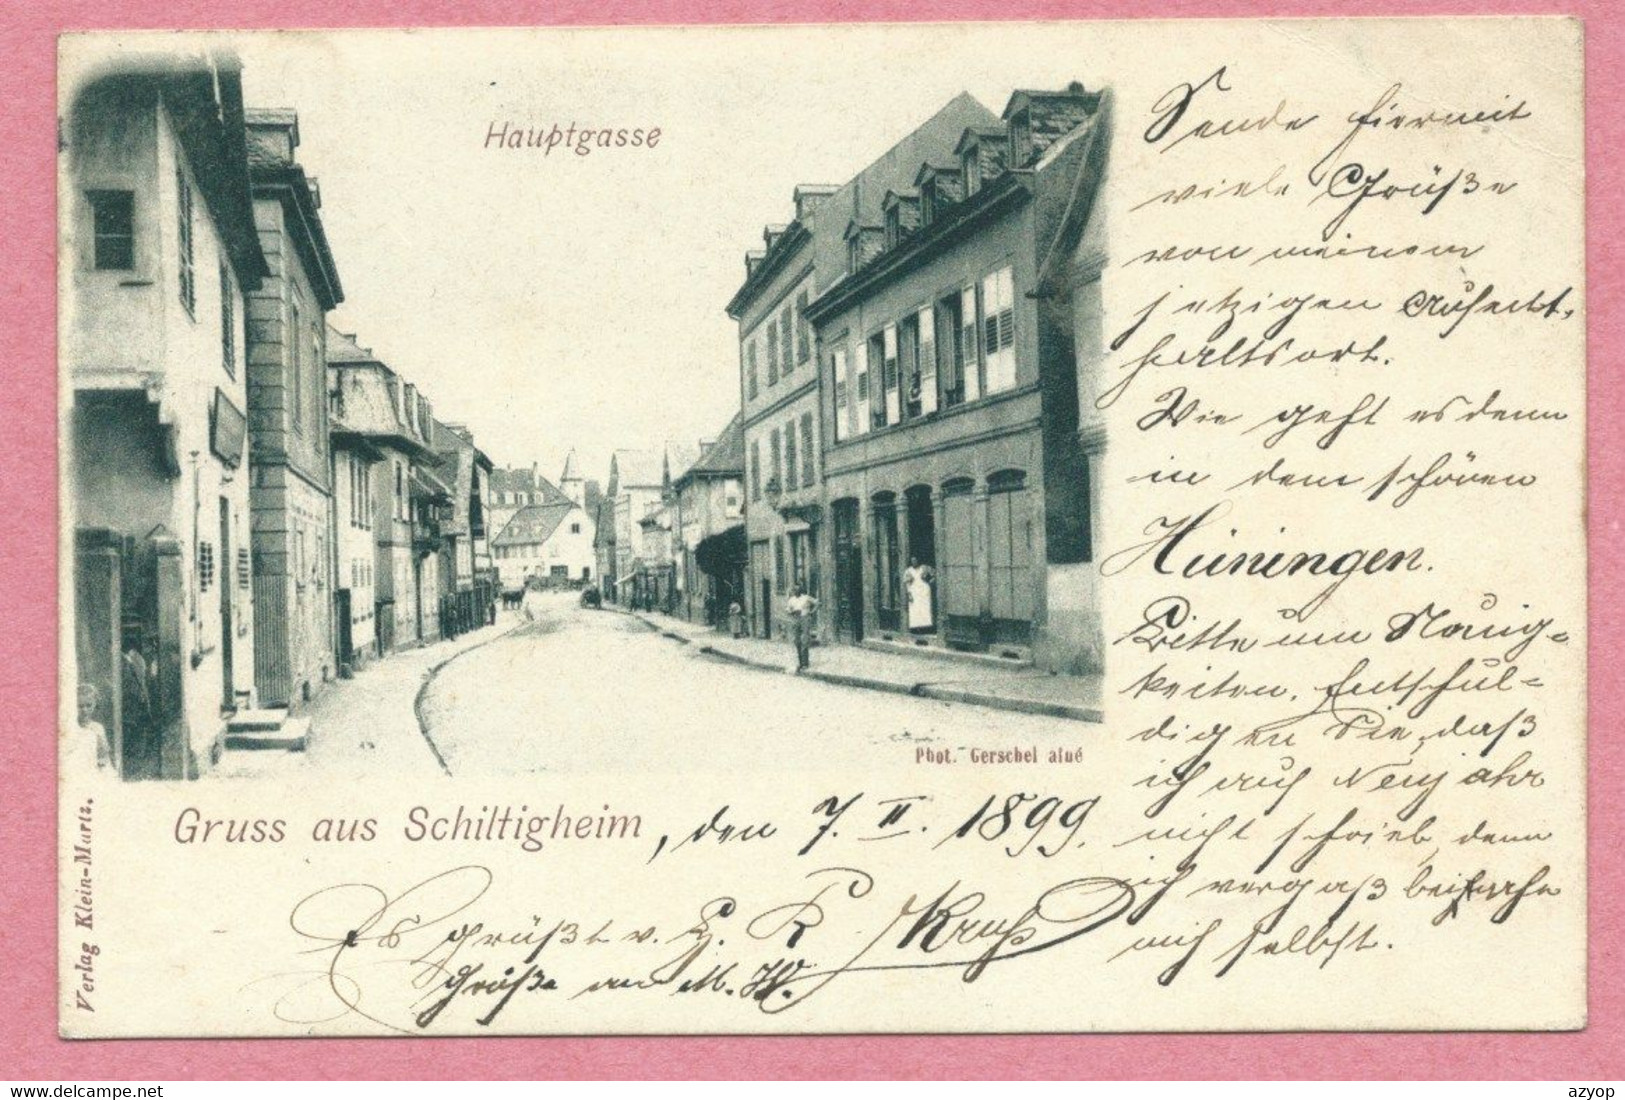 Hauptgasse
Phot. Gerschel aîné
Gruss aus Schiltigheim, den 7. II. 1899.
Verlag Klein-Murtz.
Sende hiermit
viele Grüße
von meinem
jetzigen Aufent-
haltsort.
Wie geht es denn
in dem schönen
Hüningen.
Bitte um Neuig-
keiten. Entschul-
digen Sie, daß
ich auf Neujahr
nicht schrieb, denn
ich vergaß beinahe
mich selbst.
Es grüßt v. H. R. Kruß
Grüße an M. W.
azyop